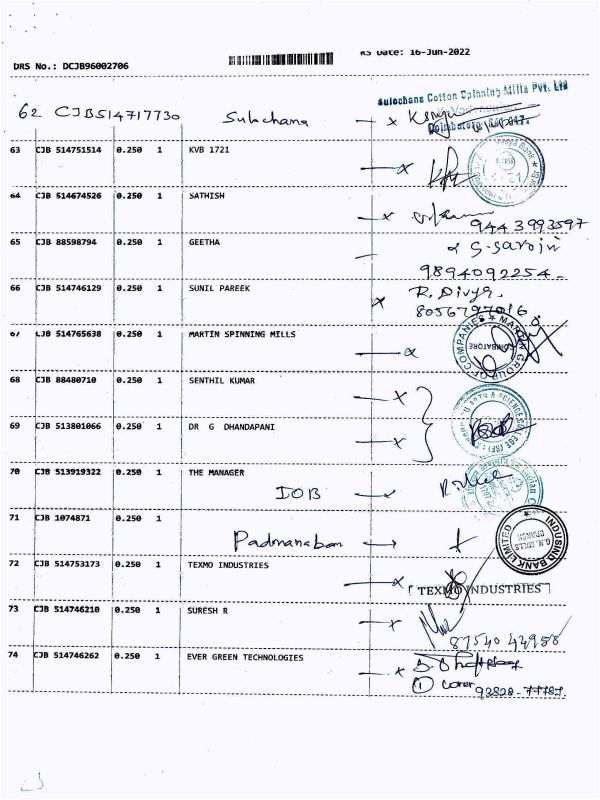 RS Date: 16-Jun-2022
DRS No.: DCJB96002706
Sulochana Cotton Spinning Mills Pvt. Ltd
62 CJB514717730 Sulochana x
63 CJB 514751514 0.250 1 KVB 1721 x
64 CJB 514674526 0.250 1 SATHISH x
9443993597
65 CJB 88598794 0.250 1 GEETHA
9894092254
66 CJB 514746129 0.250 1 SUNIL PAREEK x R. Divya
67 CJB 514765638 0.250 1 MARTIN SPINNING MILLS
MARTIN GROUP OF COMPANIES
COIMBATORE
68 CJB 88480710 0.250 1 SENTHIL KUMAR x
69 CJB 513801066 0.250 1 DR G DHANDAPANI x
70 CJB 513919322 0.250 1 THE MANAGER
IOB
71 CJB 1074871 0.250 1
Padmanaban
INDUSIND BANK LIMITED
72 CJB 514753173 0.250 1 TEXMO INDUSTRIES x
TEXMO INDUSTRIES
73 CJB 514746210 0.250 1 SURESH R x
87540 42958
74 CJB 514746262 0.250 1 EVER GREEN TECHNOLOGIES x
1 cover